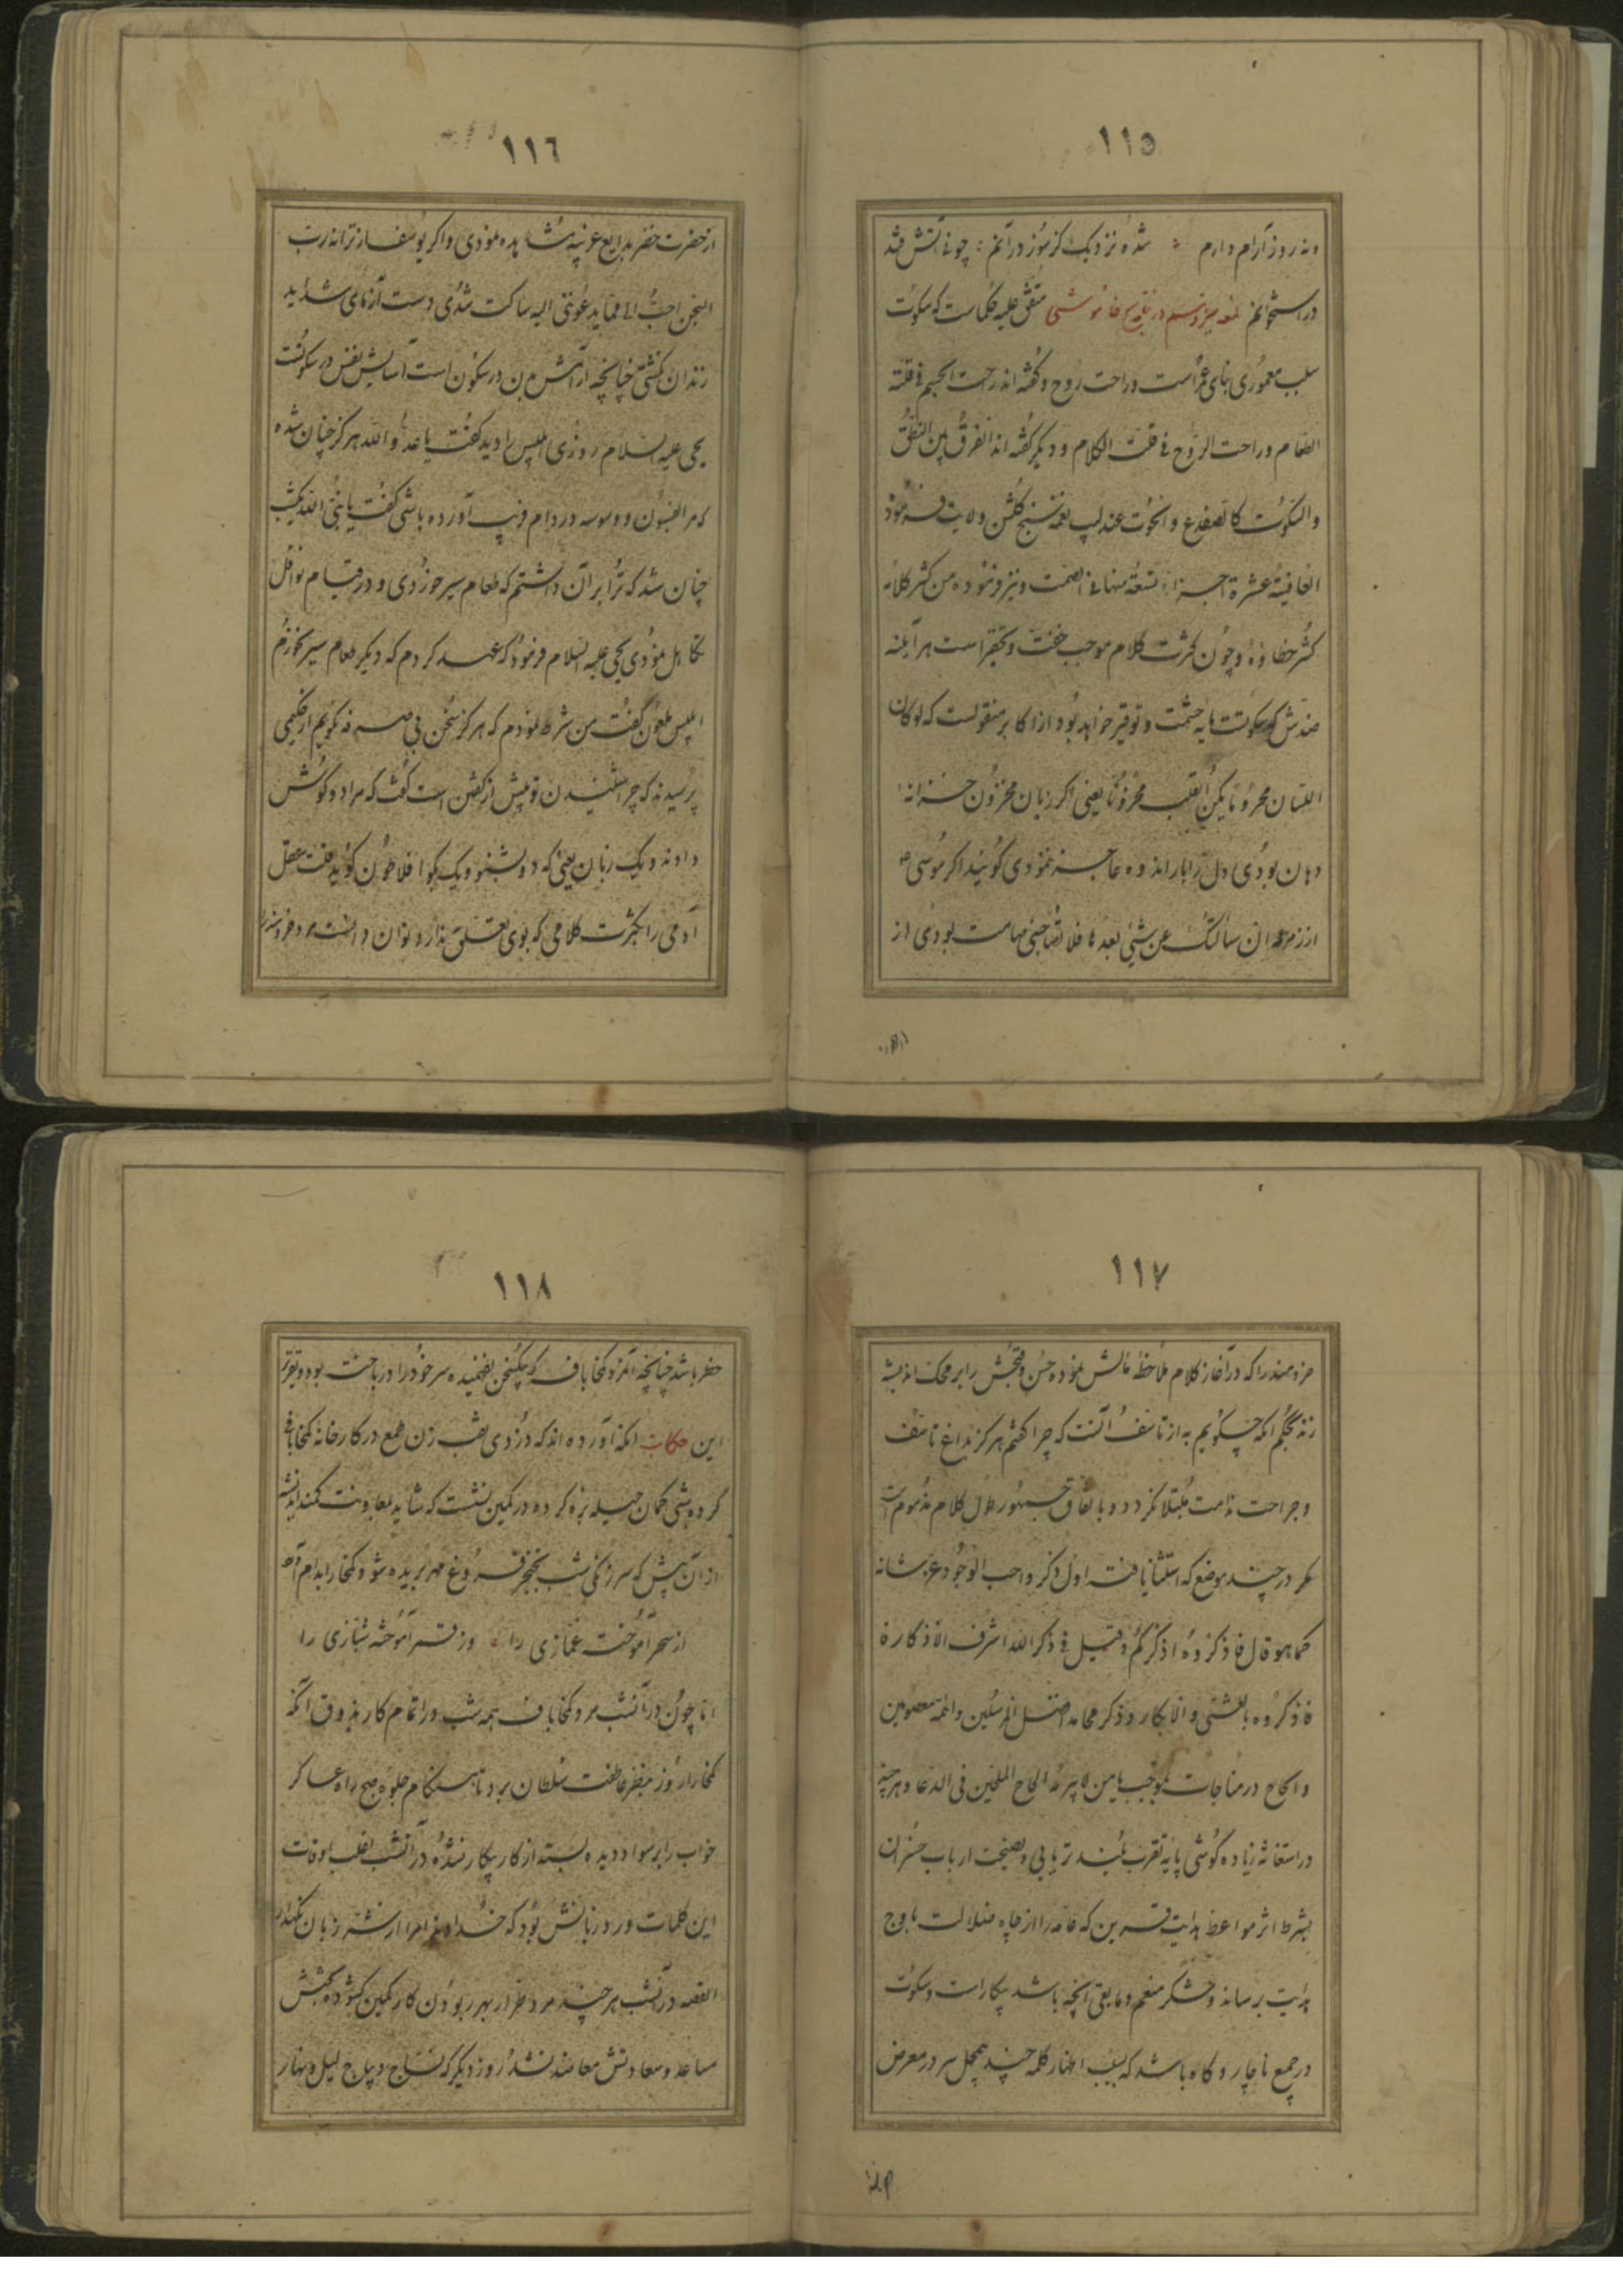 ١١٥
ونه روز آرام دارم شده نزدیک کز سوز درآنم چونی آتش فتد
در استخوانم لمعه سیزدهم در خاموشی متفق علیه حکماست که سکوت
سبب معموری بنای عمر است و راحت روح و گفته‌اند راحت الجسم فی قلته
الطعام و راحت الروح فی قلت الکلام و دیگر گفته‌اند الفرق بین النطق
والسکوت کالضفدع والحوت عندلیب نغمه سنج گلشن ولایت فرموده
العافیة عشرة اجزاء تسعة منها فی الصمت و نیز فرموده من کثر کلامه
کثر خطاؤه و چون کثرت کلام موجب خفت و تحقیر است هرآینه
ضدش که سکوتست مایه حشمت و توقیر خواهد بود از اکابر منقولست که لو کان
اللسان مخزونا یکن القلب محزونا یعنی اگر زبان مخزون خزانه
دهان بودی دل را بار اندوه عاجز ننمودی گویند اگر موسی
از زمزمه ان سألتک عن شیئ بعدها فلا تصاحبنی صامت بودی از
١١٦
از حضرت خضر بدایع غریبه مشاهده نمودی و اگر یوسف از ترانه رب
السجن احب الی مما یدعوننی الیه ساکت شدی دست آزمای شداید
زندان نگشتی چنانچه آرامش بدن در سکون است آسایش نفس در سکوتست
یحیی علیه السلام روزی ابلیس را دید گفت یا عدو الله هرگز چنان شده
که مرا افسون و وسوسه در دام فریب آورده باشی گفت یا نبی الله یکشب
چنان شد که ترا بر آن داشتم که طعام سیر خوردی و در قیام نوافل
تکاهل نمودی یحیی علیه السلام فرمود که عهد کردم که دیگر طعام سیر نخورم
ابلیس ملعون گفت من شرط نمودم که هرگز سخن بی صرفه نگویم از حکیمی
پرسیدند که چرا شنیدن تو بیش از گفتن است گفت که مرا دو گوش
دادند و یک زبان یعنی که دو بشنو و یک بگو افلاطون گوید خفت عقل
آدمی را بکثرت کلامی که بوی تعلق ندارد توان دانست مرد خردمند
١١٧
خردمند را که در آغاز کلام ملاحظه مآلش نموده حسن و قبحش را بر محک اندیشه
زند بحکم آنکه چگویم به از تأسف آنست که چرا گفتم هرگز بداغ تأسف
و جراحت ندامت مبتلا نگردد و باتفاق جمهور طول کلام مذموم است
مگر در چند موضع که استثنا یافته اول ذکر واجب الوجود عز شانه
کما هو قال فاذکروه اذکرکم و قیل فی ذکر الله اشرف الاذکاره
فاذکروه بالعشی والابکار و ذکر محامد افضل المرسلین وائمه معصومین
و الحاح در مناجات بموجب یا من لا یبرمه الحاح الملحین فی الدعا و هرچند
در استغاثه زیاده کوشی پایه تقرب بلند تر یابی و نصیحت ارباب خسران
بشرط اثر مواعظ هدایت قرین که عامه را از چاه ضلالت باوج
هدایت رساند و شکر منعم و مابقی آنچه باشد بیکار است و سکوت
در جمیع ناچار و گاه باشد که بسبب اظهار کلمه چند بیمحل سر در معرض
١١٨
خطر باشد چنانچه آنمرد کمخاباف که بیک سخن نفهمیده سر خود را در باخته بود و تقریر
این حکایت آنکه آورده‌اند که دزدی نقب زن طمع در کارخانه کمخابافی
کرده شبی کمان حیله بزه کرده در کمین نشست که شاید بمعاونت کمند اندیشه
از آن پیش که سر زنگی شب بخنجر فروغ مهر بریده شود کمخا را بدام آرد
از سحر آموخته غمازی را وز قمر آموخته شبازی را
اما چون در آنشب مرد کمخاباف همه شب در اتمام کار بذوق آنکه
کمخا را روز بنظر عاطفت سلطان برد تا هنگام جلوه صبح راه عساکر
خواب را بر سواد دیده بسته از کار بیکار نشده در آنشب اغلب اوقات
این کلمات ورد زبانش بود که خداوندا مرا از شر زبان نگهدار
القصه در آنشب هر چند مرد طرار بهر ربودن کار کمین گشوده بختش
مساعد و معاونتش معاضد نشد روز دیگر که نساج دیباج لیل و نهار